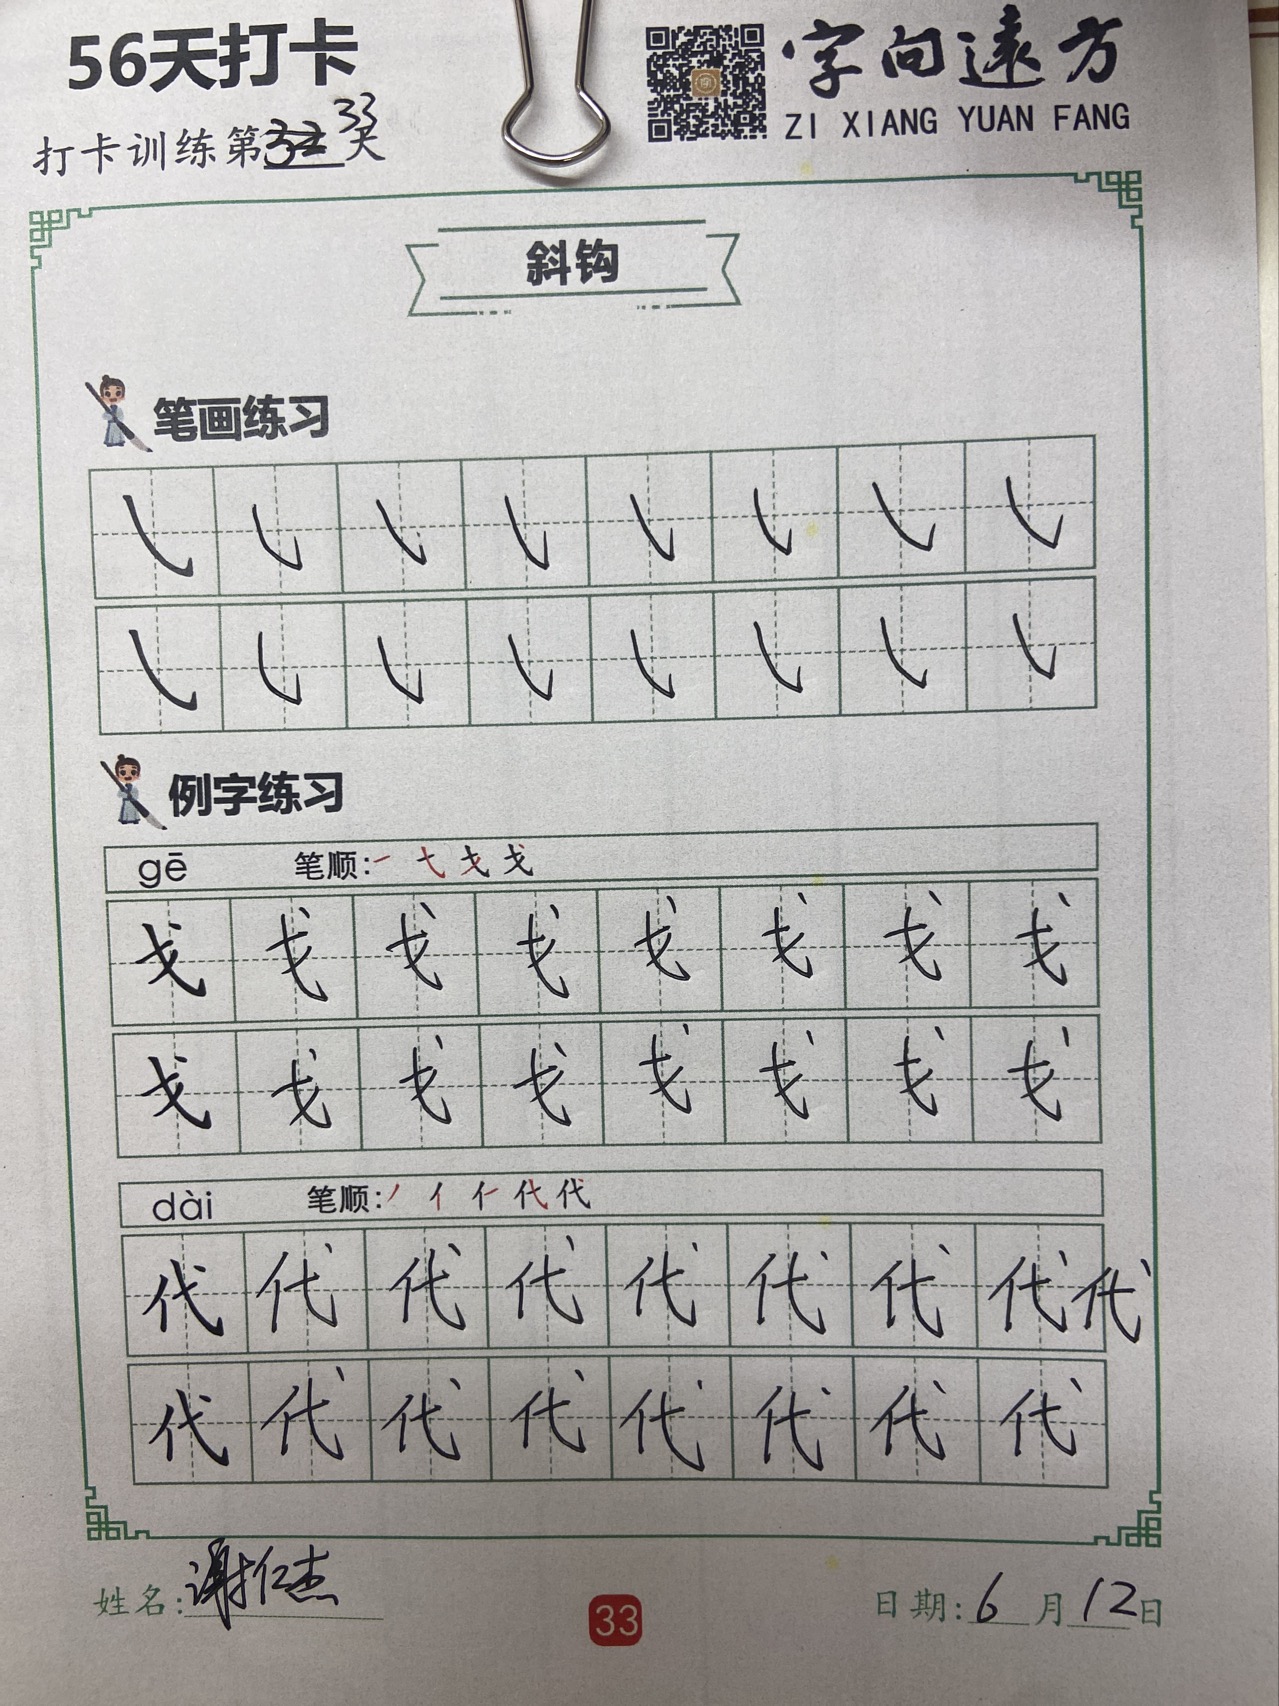 56天打卡
字向远方
ZI XIANG YUAN FANG
33
打卡训练第32天
斜钩
笔画练习
㇂㇂㇂㇂㇂㇂㇂㇂
㇂㇂㇂㇂㇂㇂㇂㇂
例字练习
gē 笔顺:㇀ 弋 戈 戈
戈戈戈戈戈戈戈戈
戈戈戈戈戈戈戈戈
dài 笔顺:丿 亻 仁 代 代
代代代代代代代代代
代代代代代代代代
姓名:谢仁杰
33
日期:6月12日